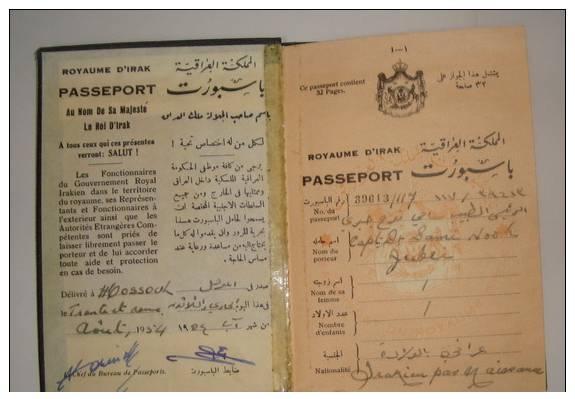 ROYAUME D'IRAK
المملكة العراقية
PASSEPORT
باسبورت
Au Nom De Sa Majesté
Le Roi D'Irak
باسم صاحب الجلالة ملك العراق
À tous ceux qui ces présentes
verront: SALUT !
لكل من له اختصاص تحية !
Les Fonctionnaires
du Gouvernement Royal
Irakien dans le territoire
du royaume, ses Représen-
tants et Fonctionnaires à
l'exterieur ainsi que les
Autorités Etrangères Com-
pétentes sont priés de
laisser librement passer le
porteur et de lui accorder
toute aide et protection
en cas de besoin.
يرجى من كافة موظفي الحكومة
العراقية الملكية داخل العراق
وممثليها في الخارج ومن جميع
السلطات الاجنبية المختصة ان
يسمحوا لحامل الباسبورت هذا
بحرية المرور وان يقدموا له كل ما
يحتاج اليه من مساعدة ورعاية عند
مساس الحاجة.
Délivré à Mossoul
صدر في
le Trente et
في هذا اليوم
Août 1954
من شهر آب
Chef du Bureau de Passeports.
ضابط الباسبورت
١—١
Ce passeport contient
32 Pages.
يشتمل هذا الجواز على
٣٢ صفحة
ROYAUME D'IRAK
المملكة العراقية
PASSEPORT
باسبورت
No. du
passeport
رقم الباسبورت
Nom du
porteur
اسم حامله
Capt. Dr.
Nom de sa
femme
اسم زوجته
Nombre
d'enfants
عدد الاولاد
Nationalité
الجنسية
عراقي بالولادة
Irakien par Naissance